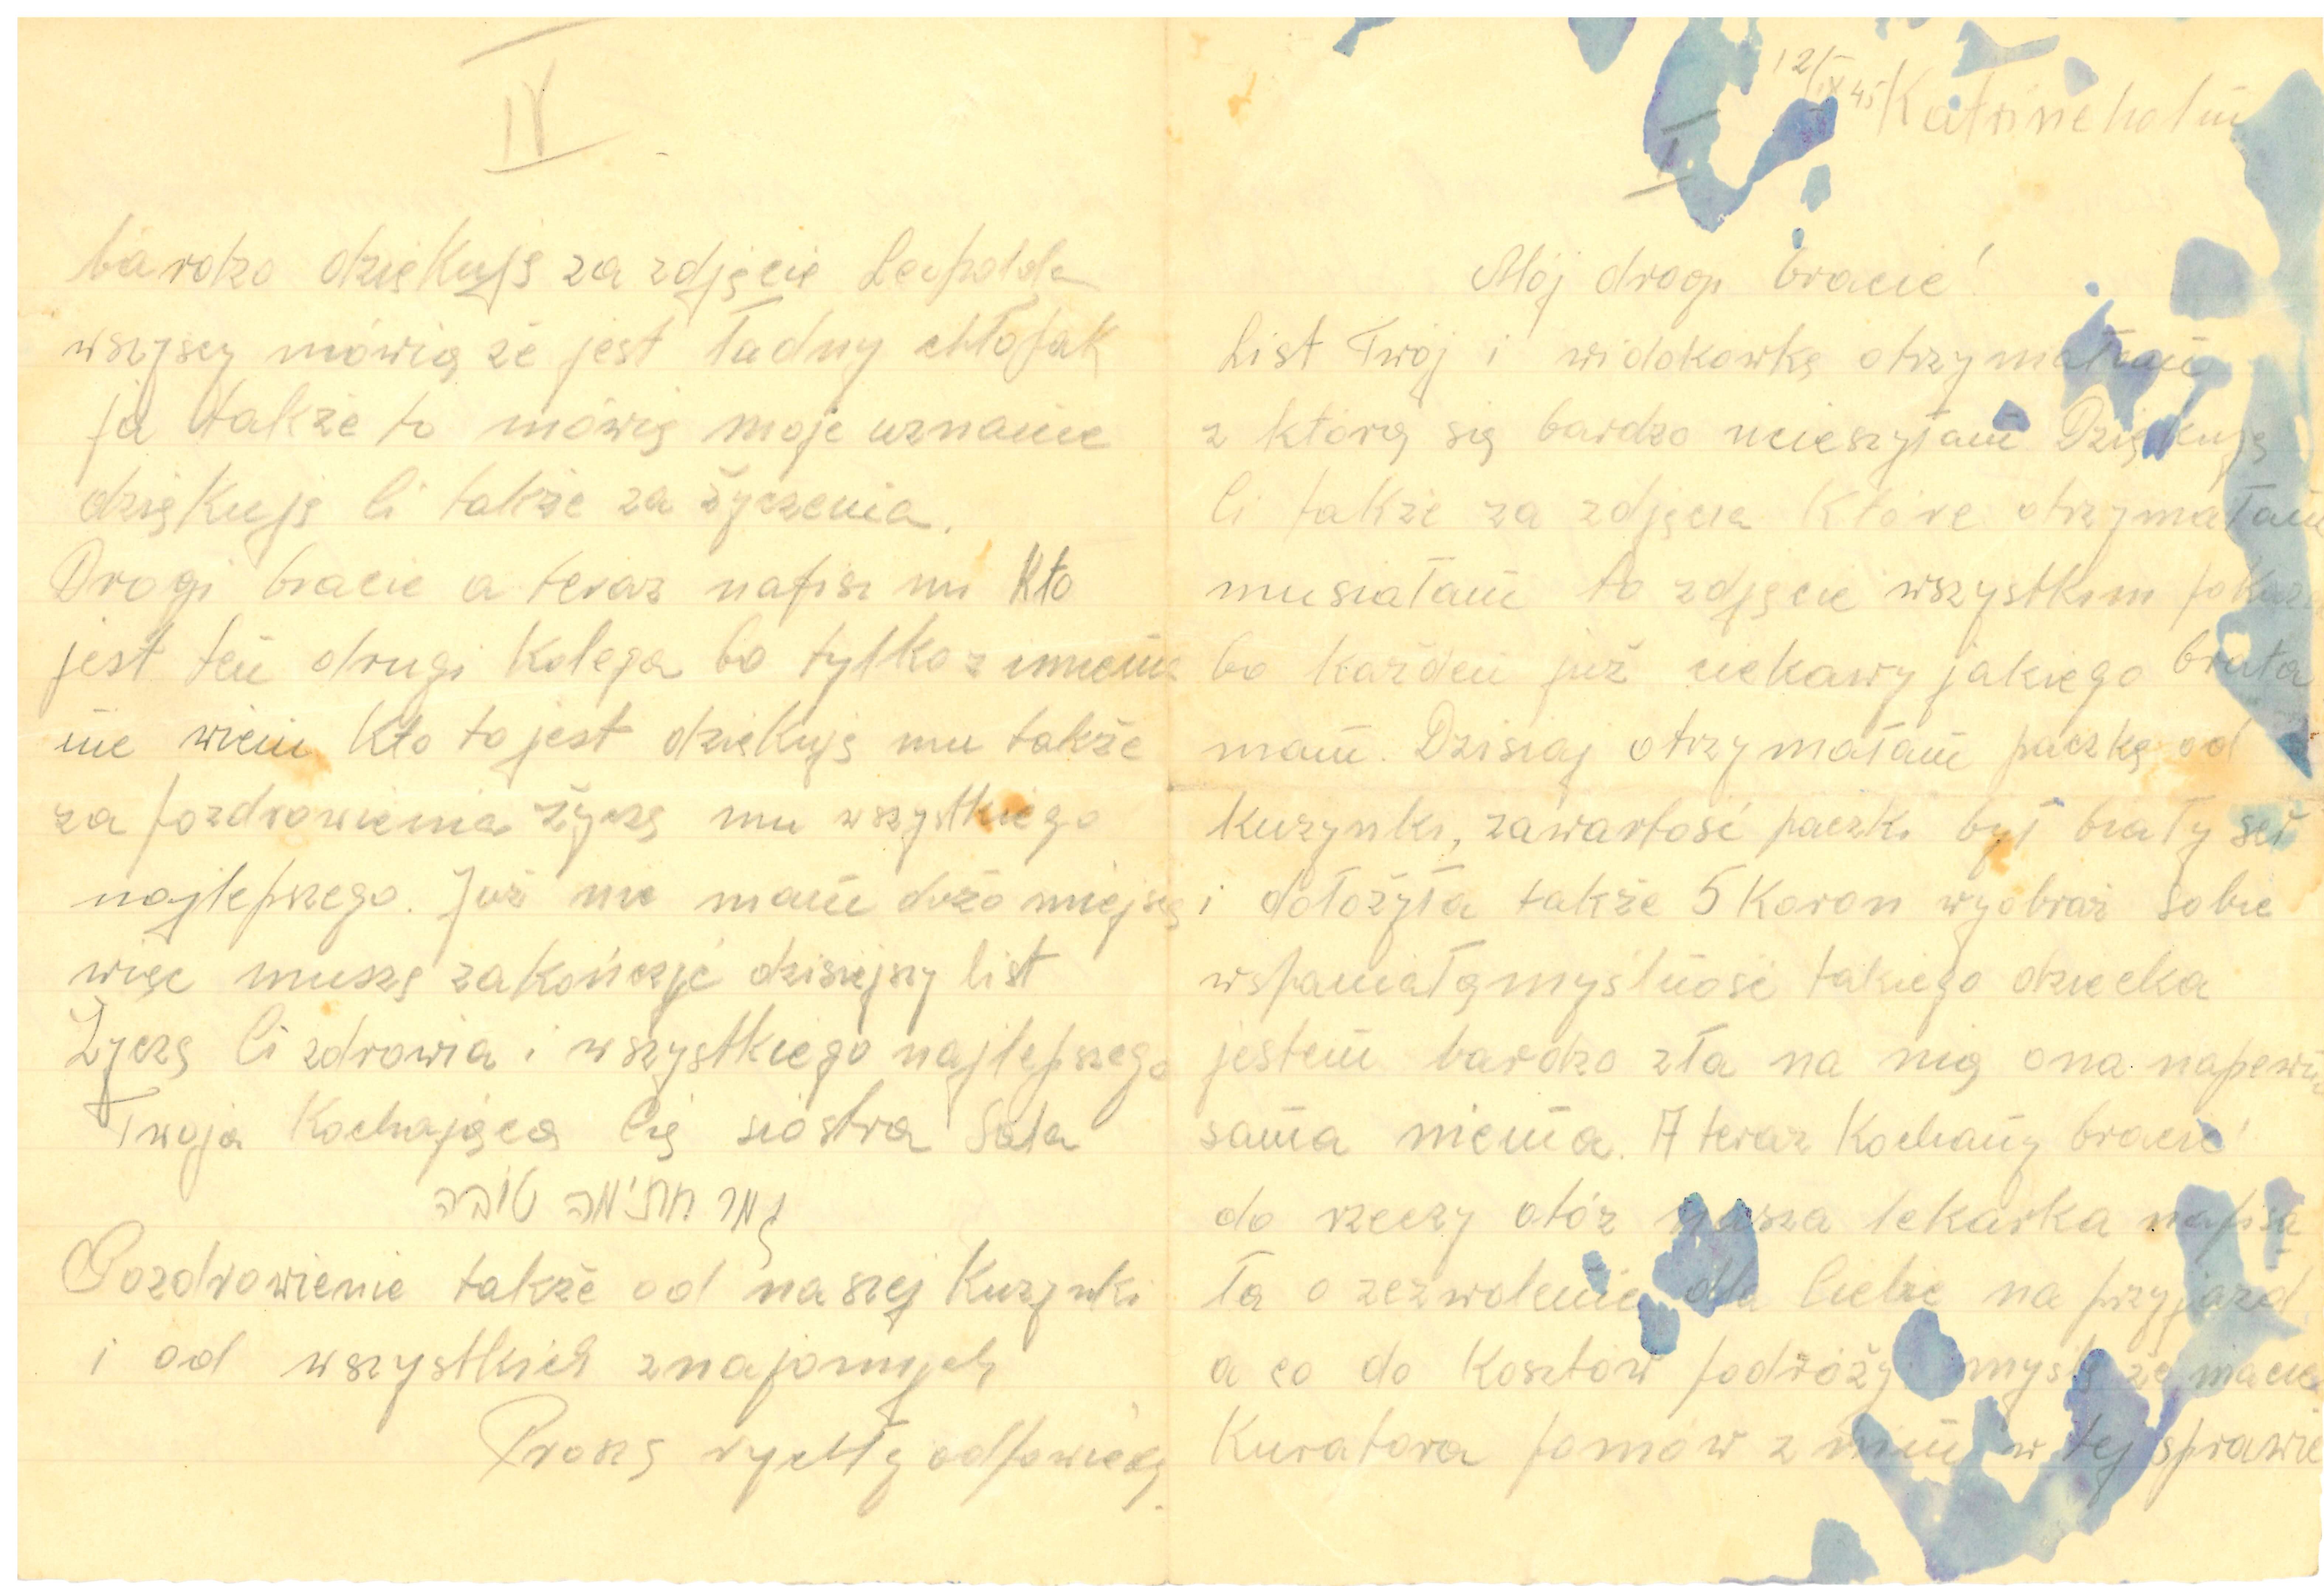 12/IX 45 Katrineholm
I
Mój drogi bracie!
List Twój i widokowkę otrzymałam
z którą się bardzo ucieszyłam Dziękuję
Ci także za zdjęcia które otrzymałam
musiałam to zdjęcie wszystkim
bo każden już ciekawy jakiego brata
mam. Dzisiaj otrzymałam paczkę od
kuzynki, zawartość paczki był biały
i dołożyła także 5 Koron wyobraź sobie
wspaniałąmyślność takiego dziecka
jestem bardzo zła na nią ona napewn
sama niema. A teraz Kochany bracie!
do rzeczy otóż nasza lekarka napisa
ła o zezwolenie dla Ciebie na przyjazd
a co do Kosztów podróży myślę że macie
Kuratora pomów z nim w tej sprawie
IV
bardzo dziękuję za zdjęcie Leopolda
wszyscy mówią że jest ładny chłopak
ja także to mówię moje uznanie
dziękuję Ci także za życzenia.
Drogi bracie a teraz napisz mi Kto
jest ten drugi Kolega bo tylko z imienia
nie wiem Kto to jest dziekuję mu także
za pozdrowienia życzę mu wszystkiego
najlepszego. Już nie mam dużo miejsca
więc muszę zakończyć dzisiejszy list
Życzę Ci zdrowia i wszystkiego najlepszego
Twoja Kochająca Cię siostra Sala
גמר חתימה טובה
Pozdrowienie także od naszej Kuzynki
i od wszystkich znajomych
Proszę rychłą odpowiedź.